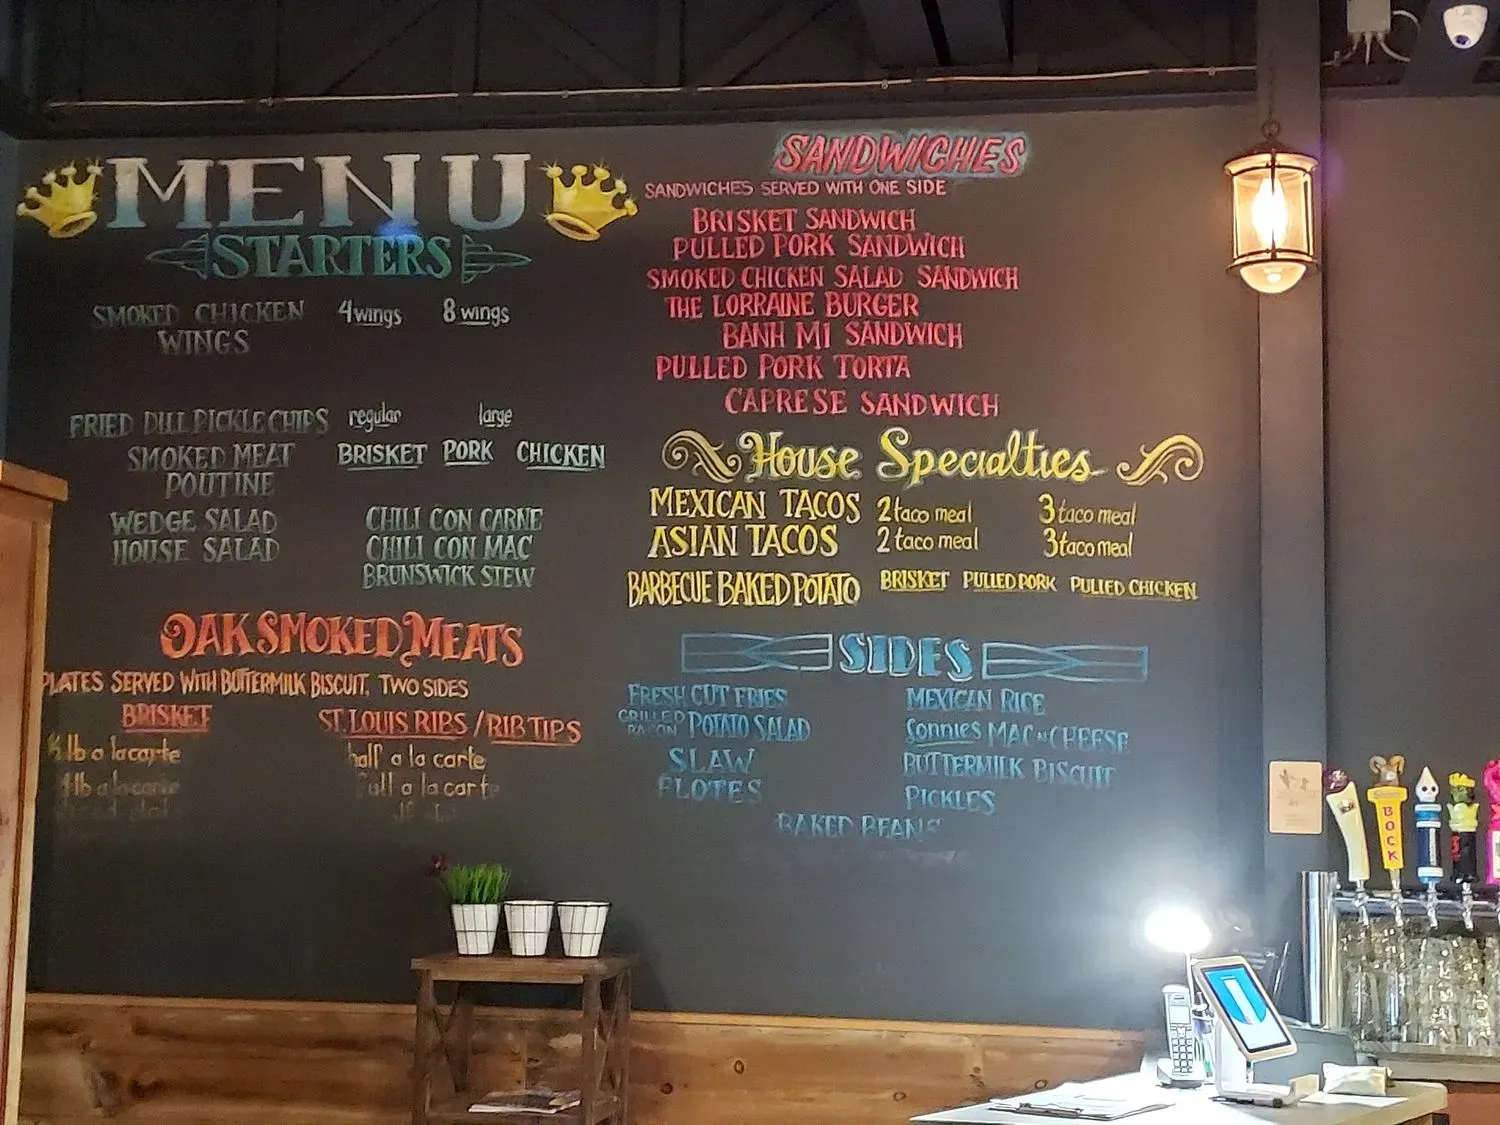 MENU
STARTERS
SMOKED CHICKEN WINGS 4 wings 8 wings
FRIED DILL PICKLE CHIPS regular large
SMOKED MEAT POUTINE BRISKET PORK CHICKEN
WEDGE SALAD
HOUSE SALAD
CHILI CON CARNE
CHILI CON MAC
BRUNSWICK STEW
OAK SMOKED MEATS
PLATES SERVED WITH BUTTERMILK BISCUIT, TWO SIDES
BRISKET
lb a lacarte
1lb a lacarte
ST. LOUIS RIBS / RIB TIPS
half a la carte
full a la carte
SANDWICHES
SANDWICHES SERVED WITH ONE SIDE
BRISKET SANDWICH
PULLED PORK SANDWICH
SMOKED CHICKEN SALAD SANDWICH
THE LORRAINE BURGER
BANH MI SANDWICH
PULLED PORK TORTA
CAPRESE SANDWICH
House Specialties
MEXICAN TACOS 2 taco meal 3 taco meal
ASIAN TACOS 2 taco meal 3 taco meal
BARBECUE BAKED POTATO BRISKET PULLED PORK PULLED CHICKEN
SIDES
FRESH CUT FRIES
GRILLED BACON POTATO SALAD
SLAW
ELOTES
MEXICAN RICE
Sonnies MAC N CHEESE
BUTTERMILK BISCUIT
PICKLES
BAKED BEANS
BOCK